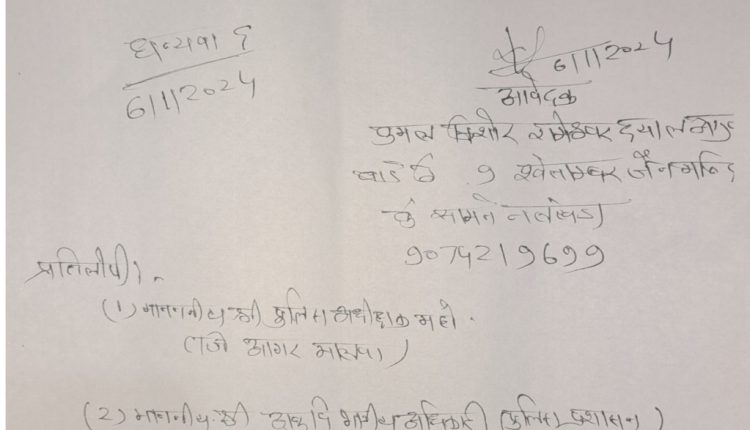 धन्यवाद
6/1/2024
6/1/2024
आवेदक
किशोर रामेश्वर दयाल
वार्ड 9 श्वेताम्बर जैन मन्दि
के सामने नलखेड़ा
9074219699
प्रतिलीपी:-
(1) माननीय श्री पुलिस अधीक्षक महो.
आगर मालवा)
(2) माननीय श्री अधिकारी (पुलिस प्रशासन)